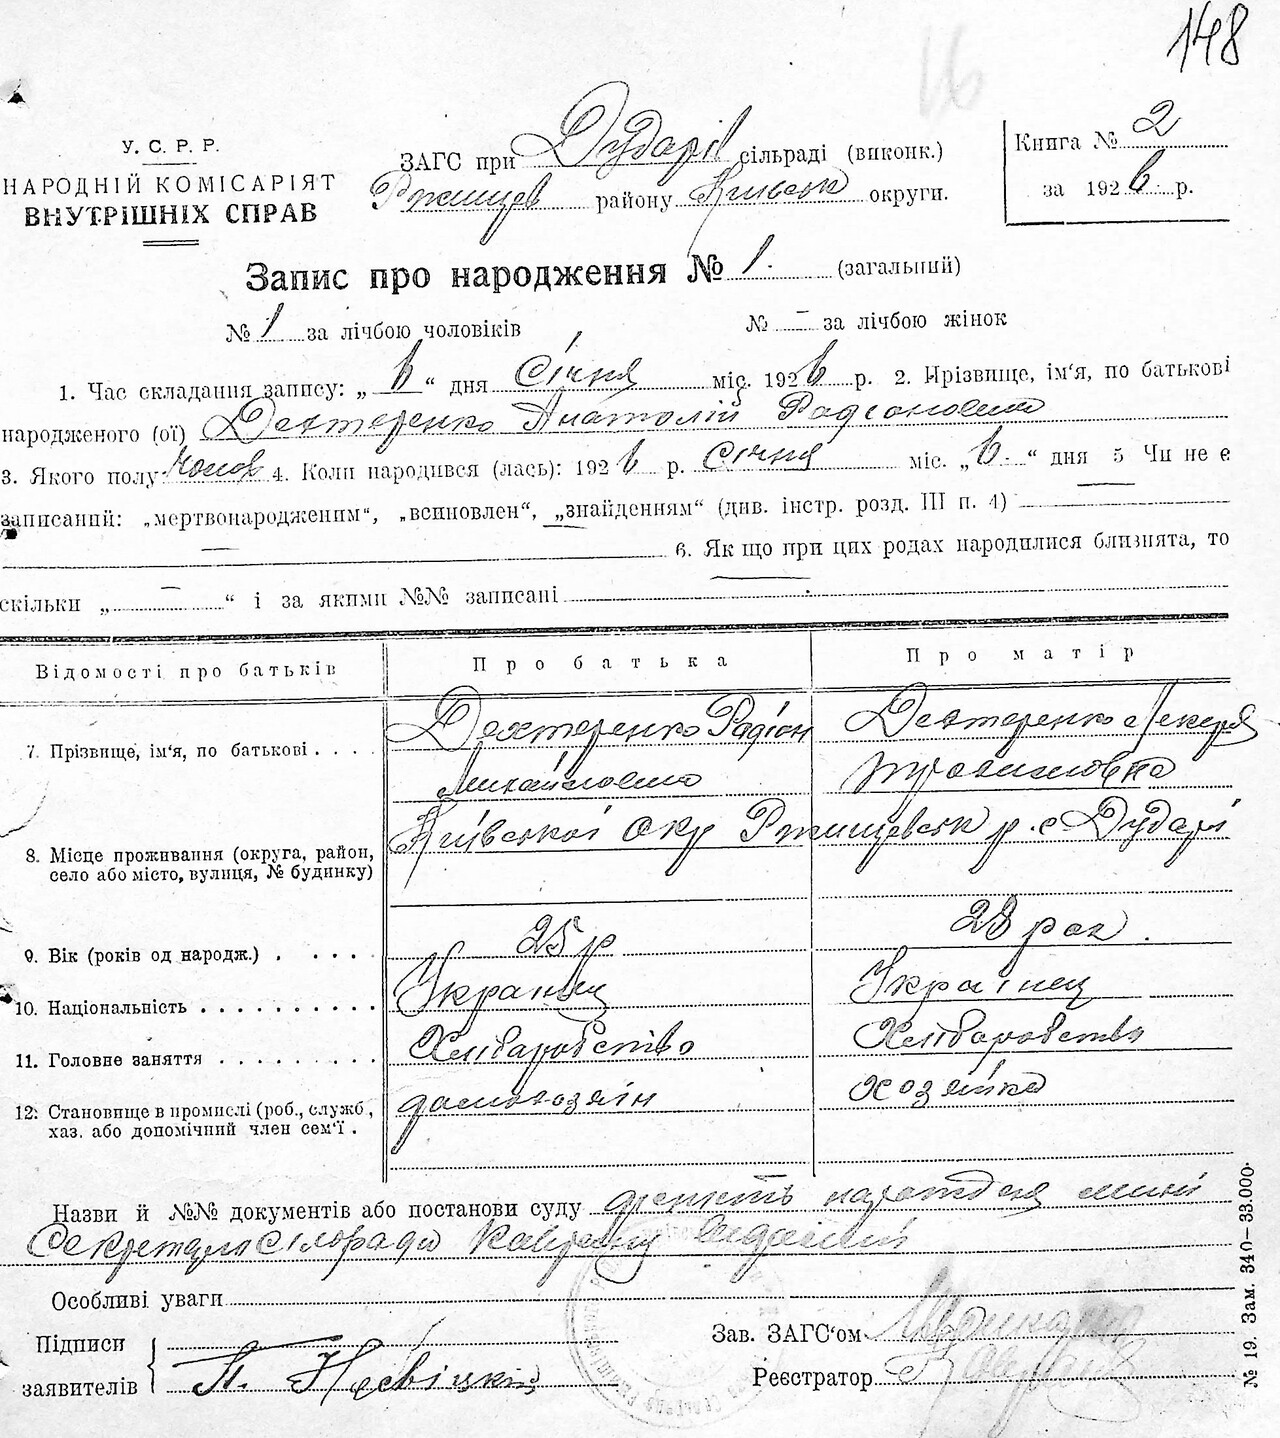 148
16
У. С. Р. Р.
НАРОДНІЙ КОМІСАРІЯТ
ВНУТРІШНІХ СПРАВ
ЗАГС при Дударів сільраді (виконк.)
Ржищев району Київськ округи.
Книга № 2
за 1926 р.
Запис про народження № 1. (загальний)
№ 1 за лічбою чоловіків № – за лічбою жінок
1. Час складання запису: „ 6 “ дня Січня міс. 1926 р. 2. Прізвище, ім'я, по батькові
народженого (ої) Дехтеренко Анатолій Радіонович
3. Якого полу чолов 4. Коли народився (лась): 1926 р. Січня міс. „ 6. “ дня 5 Чи не є
записаний: „мертвонародженим“, „всиновлен“, „знайденням“ (див. інстр. розд. III п. 4)
6. Як що при цих родах народилися близнята, то
скільки „ – “ і за якими №№ записані
Відомості про батьків Про батька Про матір
7. Прізвище, ім'я, по батькові . . . . Дехтеренко Радіон Дехтеренко
Михайлович
8. Місце проживання (округа, район, Київської Окр Ржищевськ р. с Дударі
село або місто, вулиця, № будинку)
9. Вік (років од народж.) . . . . . 25 р 28 рок.
10. Національність . . . . . . . . . . Українец Українец
11. Головне заняття . . . . . . . . . Хліборобство Хліборобство
12. Становище в промислі (роб., служб, домохозяїн хозяйка
хаз. або допомічний член сем'ї .
Назви й №№ документів або постанови суду
Секретарю Сілради
Особливі уваги
Підписи
заявителів
Зав. ЗАГС'ом
Реєстратор
№ 19. Зам. 340–33.000.